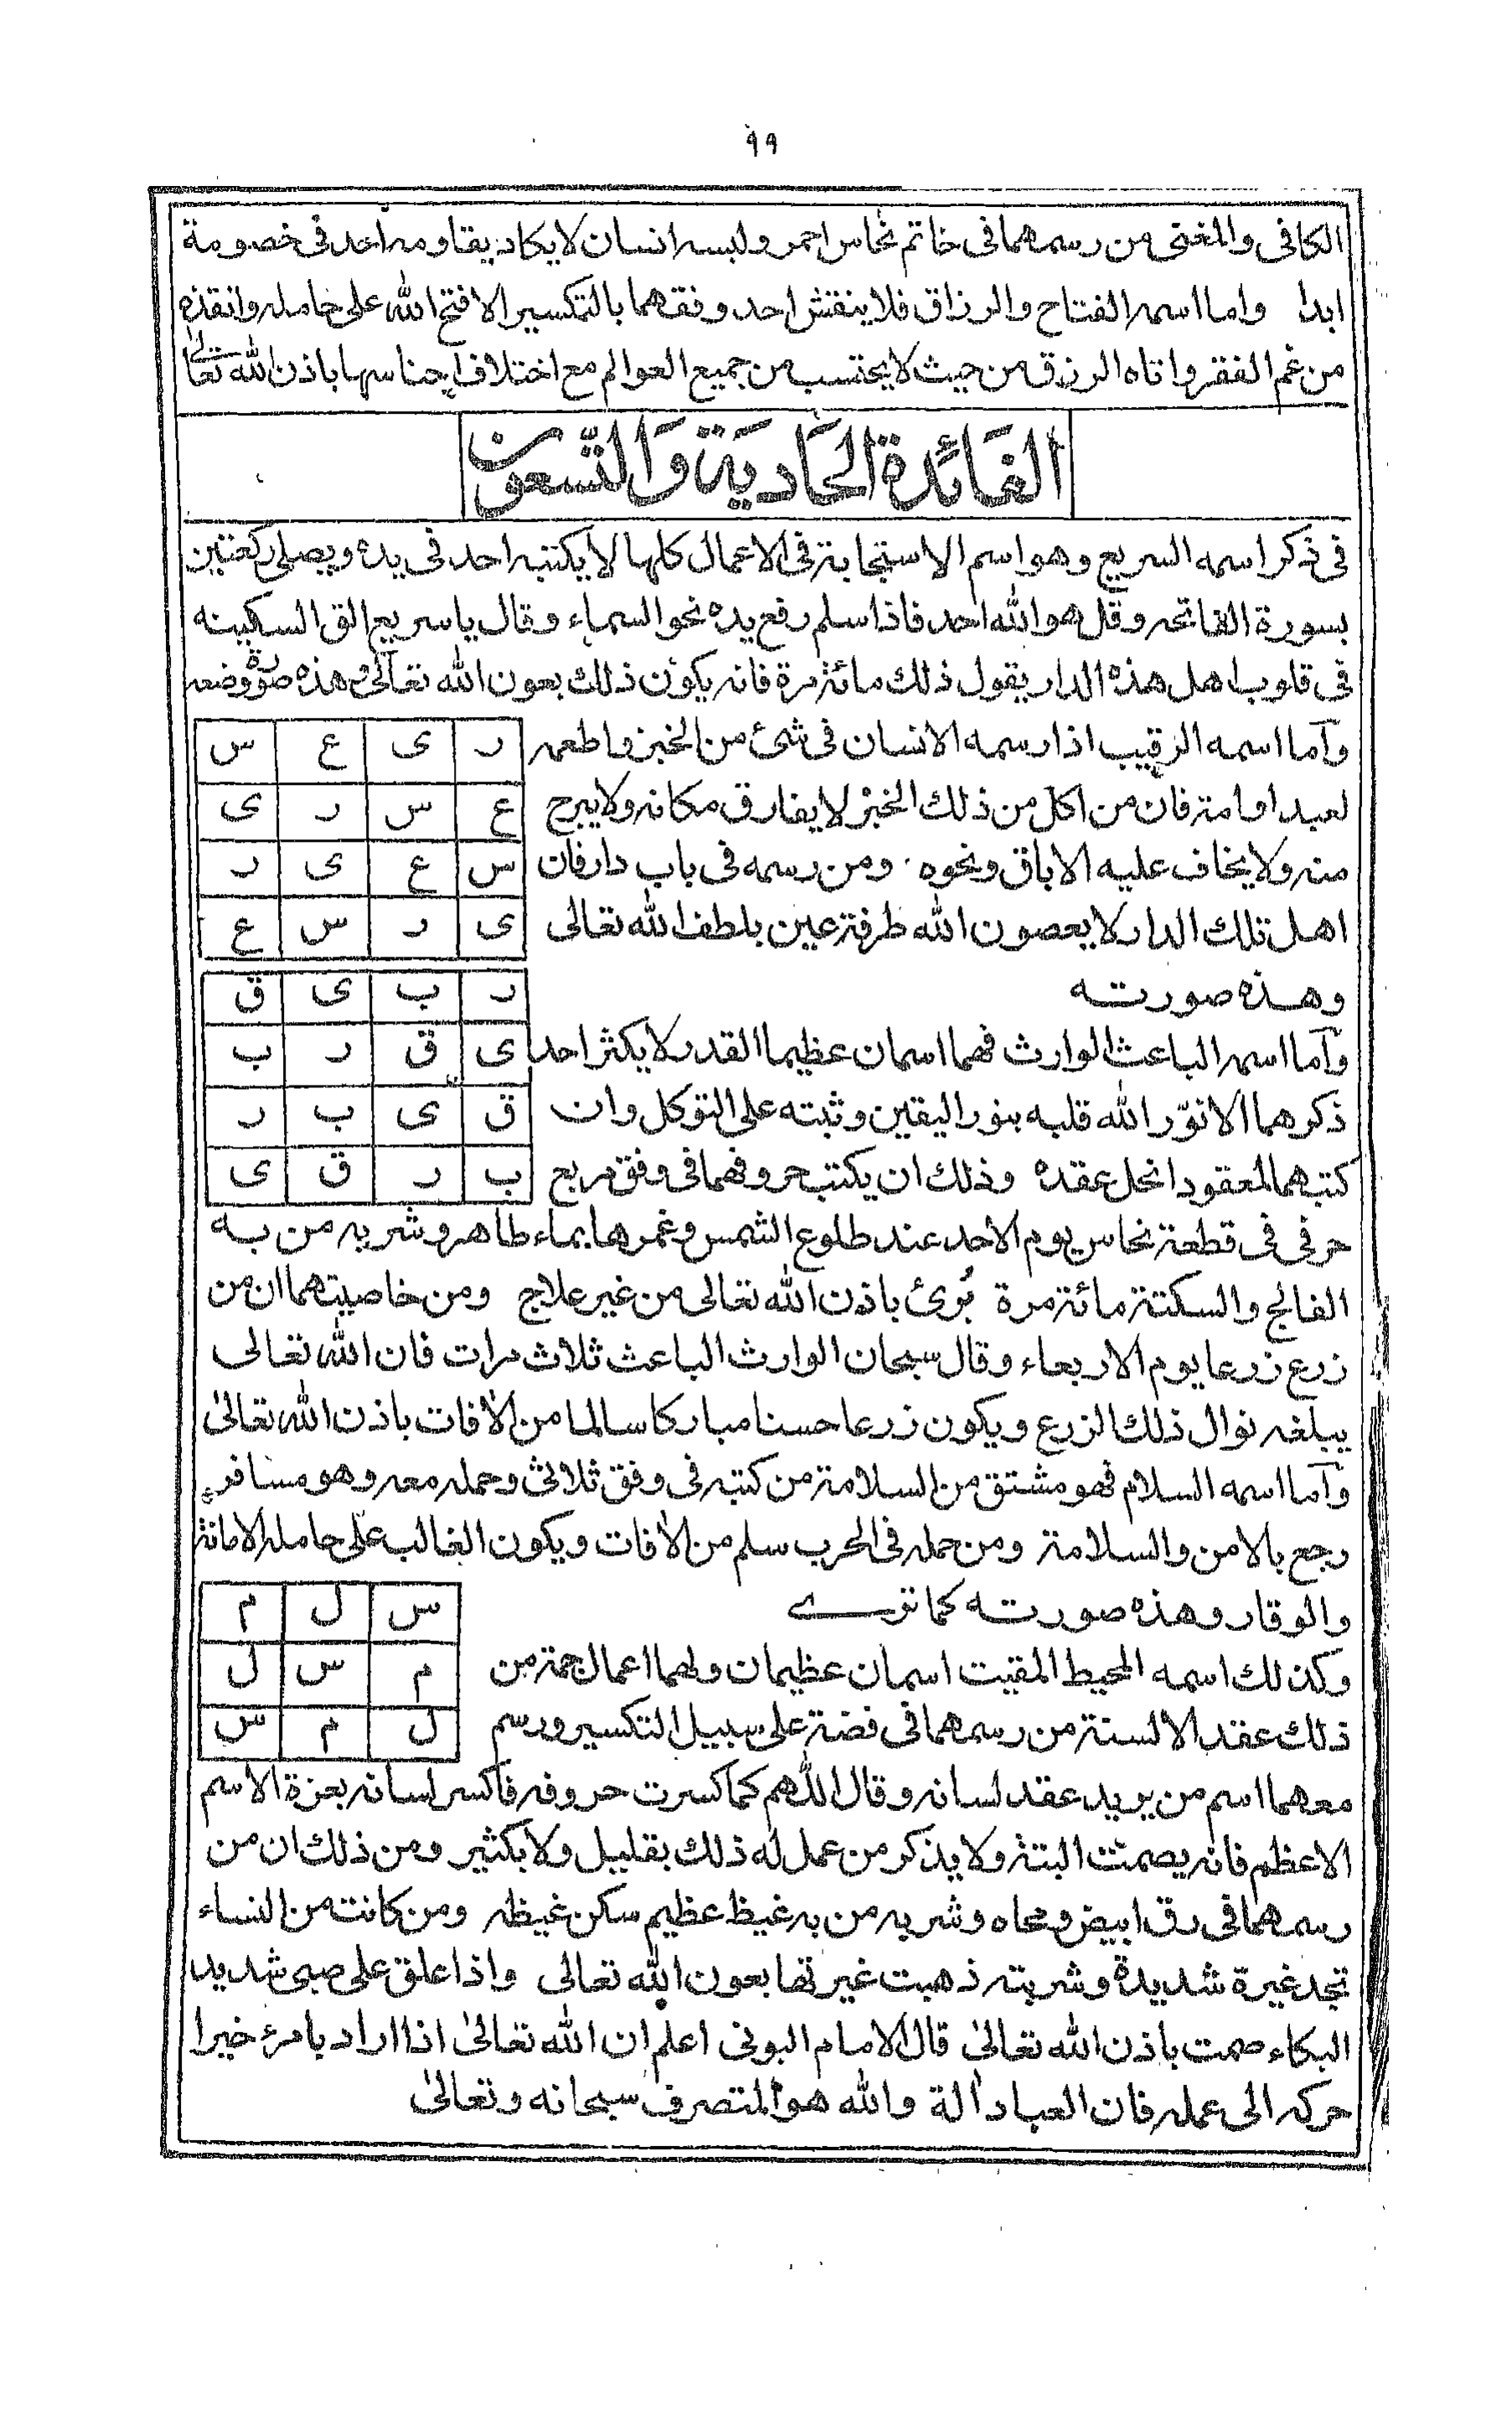 ٩٩
الكافى والمغنى من رسمهما فى خاتم نحاس احمر ولبسه انسان لا يكاد يقاومه احد فى خصومة
ابدا واما اسمه الفتاح والرزاق فلا ينقش احد وفقهما بالتكسير الا فتح الله على حامله وانقذه
من غم الفقر واتاه الرزق من حيث لا يحتسب من جميع العوالم مع اختلاف اجناسها باذن الله تعالى
الفَائدة الحَاديَة وَالتّسعون
فى ذكر اسمه السريع وهو اسم الاستجابة فى الاعمال كلها لا يكتبه احد فى يده ويصلى ركعتين
بسورة الفاتحه وقل هو الله احد فاذا سلم رفع يده نحو السماء وقال يا سريع الق السكينه
فى قلوب اهل هذه الدار يقول ذلك مائة مرة فانه يكون ذلك بعون الله تعالى وهذه صورة وضعه
وآما اسمه الرقيب اذا رسمه الانسان فى شئ من الخبز واطعمه
لعبد او امة فان من اكل من ذلك الخبز لا يفارق مكانه ولا يبرح
منه ولا يخاف عليه الاباق ونحوه ومن رسمه فى باب دار فان
اهل تلك الدار لا يعصون الله طرفة عين بلطف الله تعالى
ر ى ع س
ع س ر ى
س ع ى ر
ى ر س ع
وهذه صورته
وآما اسمه الباعث الوارث فهما اسمان عظيما القدر لا يكثر احد
ذكرهما الا نوّر الله قلبه بنور اليقين وثبته على التوكل وان
كتبهما لمعقود انحل عقده وذلك ان يكتب حروفهما فى وفق مربع
ر ب ى ق
ى ق ر ب
ق ى ب ر
ب ر ق ى
حرفى فى قطعة نحاس يوم الاحد عند طلوع الشمس وغمرها بماء طاهر وشربه من به
الفالج والسكتة مائة مرة بُرئ باذن الله تعالى من غير علاج ومن خاصيتهما ان من
زرع زرعا يوم الاربعاء وقال سبحان الوارث الباعث ثلاث مرات فان الله تعالى
يبلغه نوال ذلك الزرع ويكون زرعا حسنا مباركا سالما من الافات باذن الله تعالى
وآما اسمه السلام فهو مشتق من السلامة من كتبه فى وفق ثلاثى وحمله معه وهو مسافر
رجع بالامن والسلامة ومن حمله فى الحرب سلم من الافات ويكون الغالب على حامله الامانة
والوقار وهذه صورته كما ترے
وكذلك اسمه المحيط المقيت اسمان عظيمان ولهما اعمال جمة من
ذلك عقد الالسنة من رسمهما فى فضة على سبيل التكسير ورسم
س ل م
م س ل
ل م س
معهما اسم من يريد عقد لسانه وقال اللهم كما كسرت حروفه فاكسر لسانه بعزة الاسم
الاعظم فانه يصمت البتة ولا يذكر من عمل له ذلك بقليل ولا بكثير ومن ذلك ان من
رسمهما فى رق ابيض ومحاه وشربه من به غيظ عظيم سكن غيظه ومن كانت من النساء
تجد غيرة شديدة وشربته ذهبت غيرتها بعون الله تعالى واذا علق على صبى شديد
البكاء صمت باذن الله تعالى قال الامام البونى اعلم ان الله تعالى اذا اراد بامرء خيرا
حركه الى عمله فان العباد الة والله هو المتصرف سبحانه وتعالى